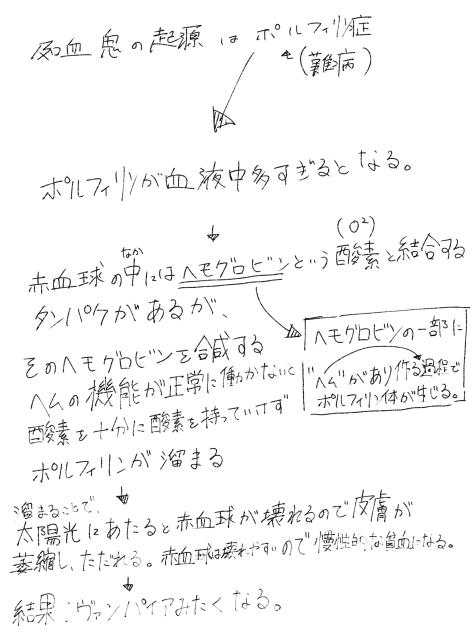 吸血鬼の起源はポルフィリン症
(難病)
ポルフィリンが血液中多すぎるとなる。
(O²)
なか
赤血球の中にはヘモグロビンという酸素と結合する
タンパクがあるが、
そのヘモグロビンを合成する
ヘムの機能が正常に働かないと
酸素を十分に酸素を持っていけず
ポルフィリンが溜まる
ヘモグロビンの一部に
"ヘム"があり作る過程で
ポルフィリン体が生じる。
溜まることで、
太陽光にあたると赤血球が壊れるので皮膚が
萎縮し、ただれる。赤血球は壊れやすいので慢性的な貧血になる。
結果:ヴァンパイアみたくなる。